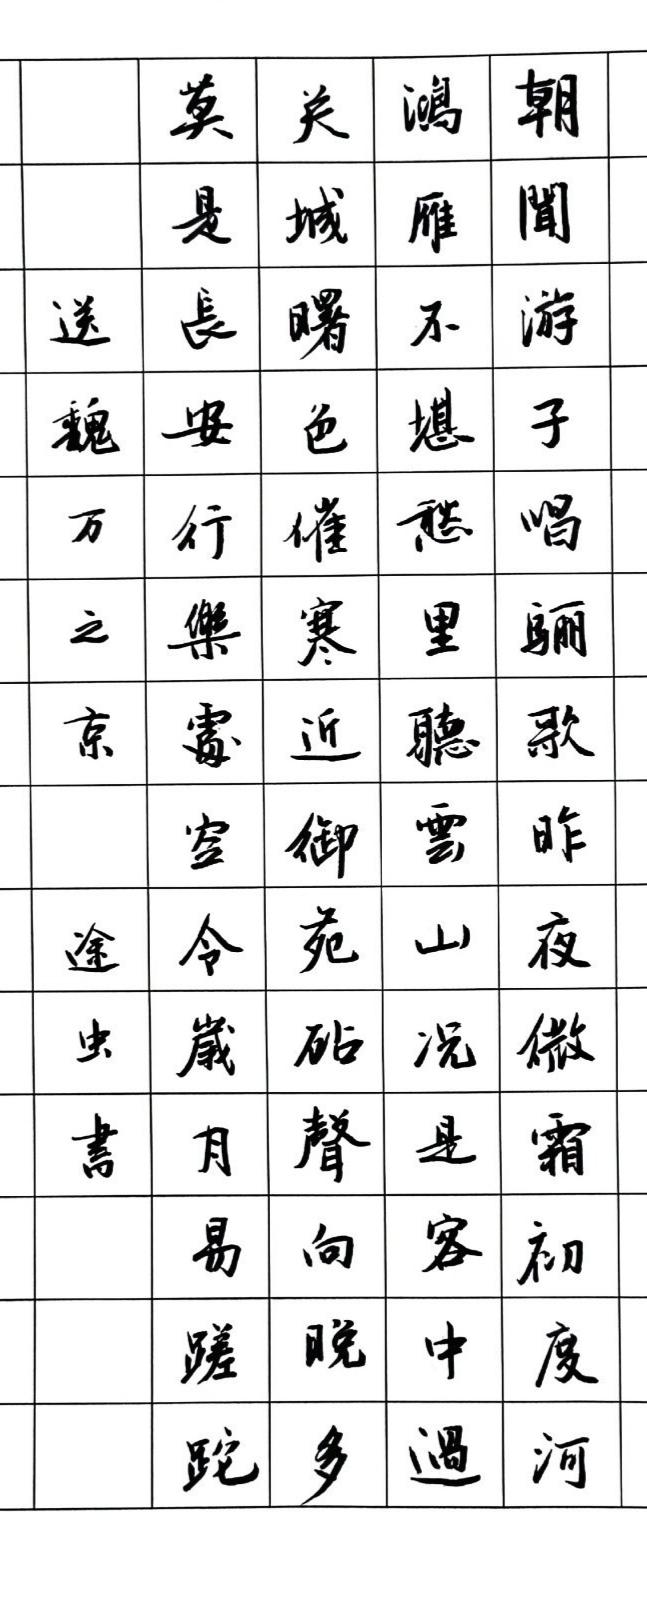 朝聞游子唱骊歌昨夜微霜初度河
鴻雁不堪愁里聽雲山况是客中過
关城曙色催寒近御苑砧聲向晚多
莫是長安行樂處空令歲月易蹉跎
送魏万之京 途虫書